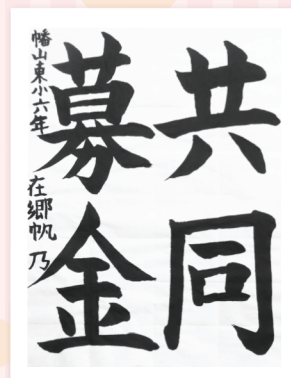 共同
募金
幡山東小六年 在郷帆乃